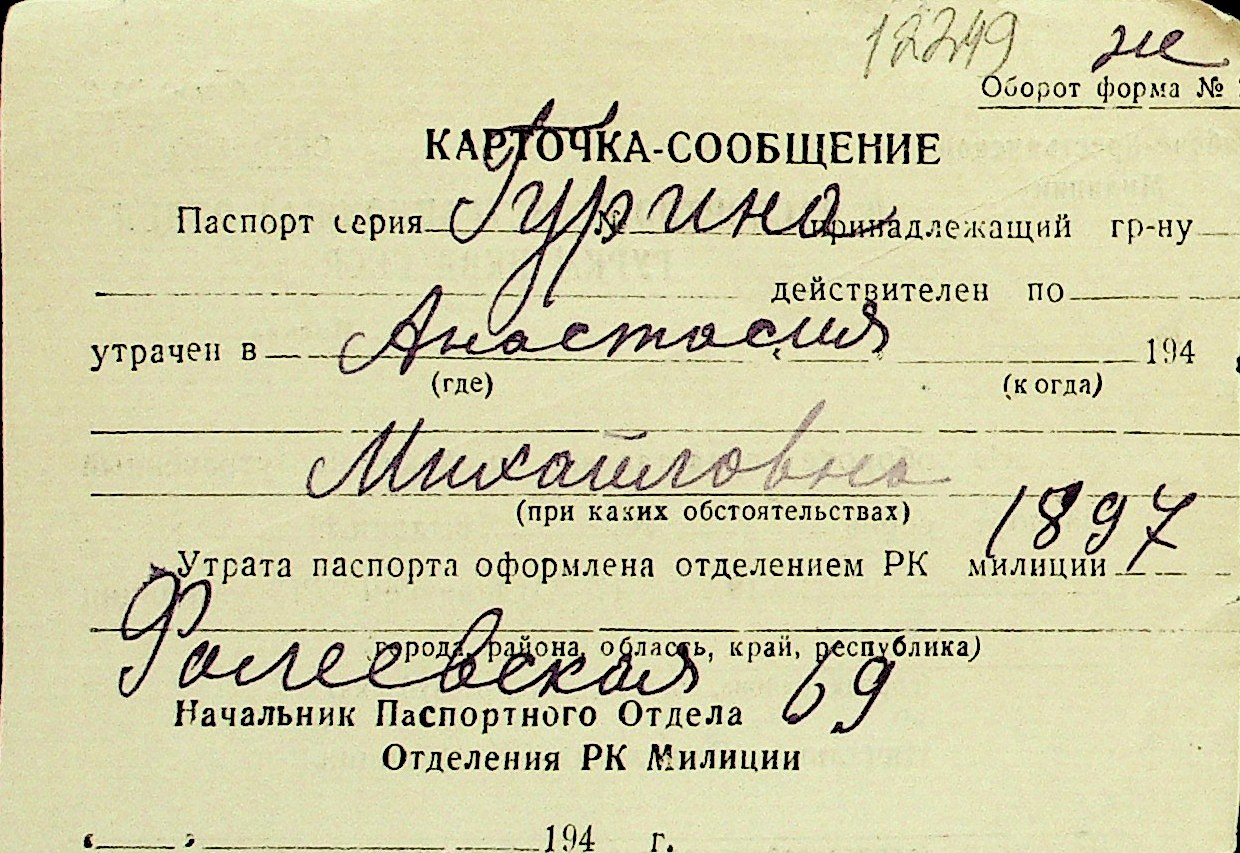 12249 же
Оборот форма №
КАРТОЧКА-СООБЩЕНИЕ
Гурина
Паспорт серия № принадлежащий гр-ну
действителен по
Анастасия
утрачен в 194
(где) (когда)
Михайловна
(при каких обстоятельствах)
1897
Утрата паспорта оформлена отделением РК милиции
города, района, область, край, республика)
Фалеевская 69
Начальник Паспортного Отдела
Отделения РК Милиции
194 г.